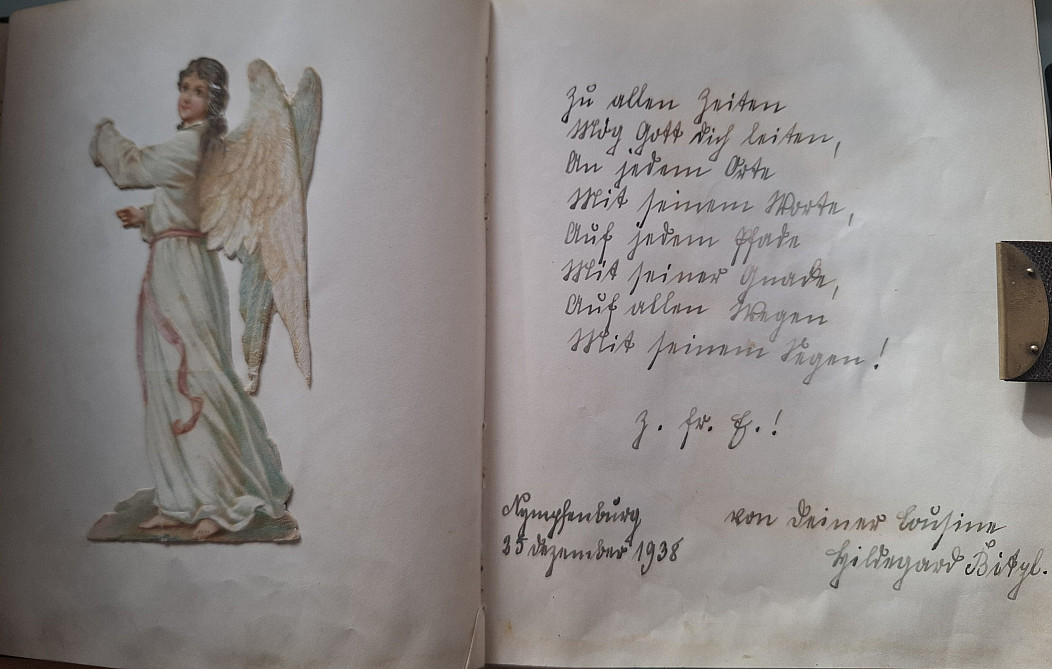 Zu allen Zeiten
Mög Gott dich leiten,
An jedem Orte
Mit seinem Worte,
Auf jedem Pfade
Mit seiner Gnade,
Auf allen Wegen
Mit seinem Segen!
Z. fr. E.!
Nymphenburg von deiner Cousine
25 Dezember 1938 Hildegard